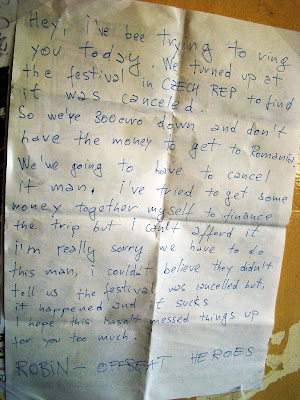 Hey, i've bee trying to ring
you today. We turned up at
the festival in CZECH REP to find
it was canceled.
So we're 800euro down and don't
have the money to get to Romania
We're going to have to cancel
it man. i've tried to get some
money together myself to finance
the trip but i can't afford it
i'm really sorry we have to do
this man, i couldn't believe they didn't
tell us the festival was cancelled but,
it happened and it sucks
i hope this hasn't messed things up
for you too much.
ROBIN - OFFBEAT HEROES